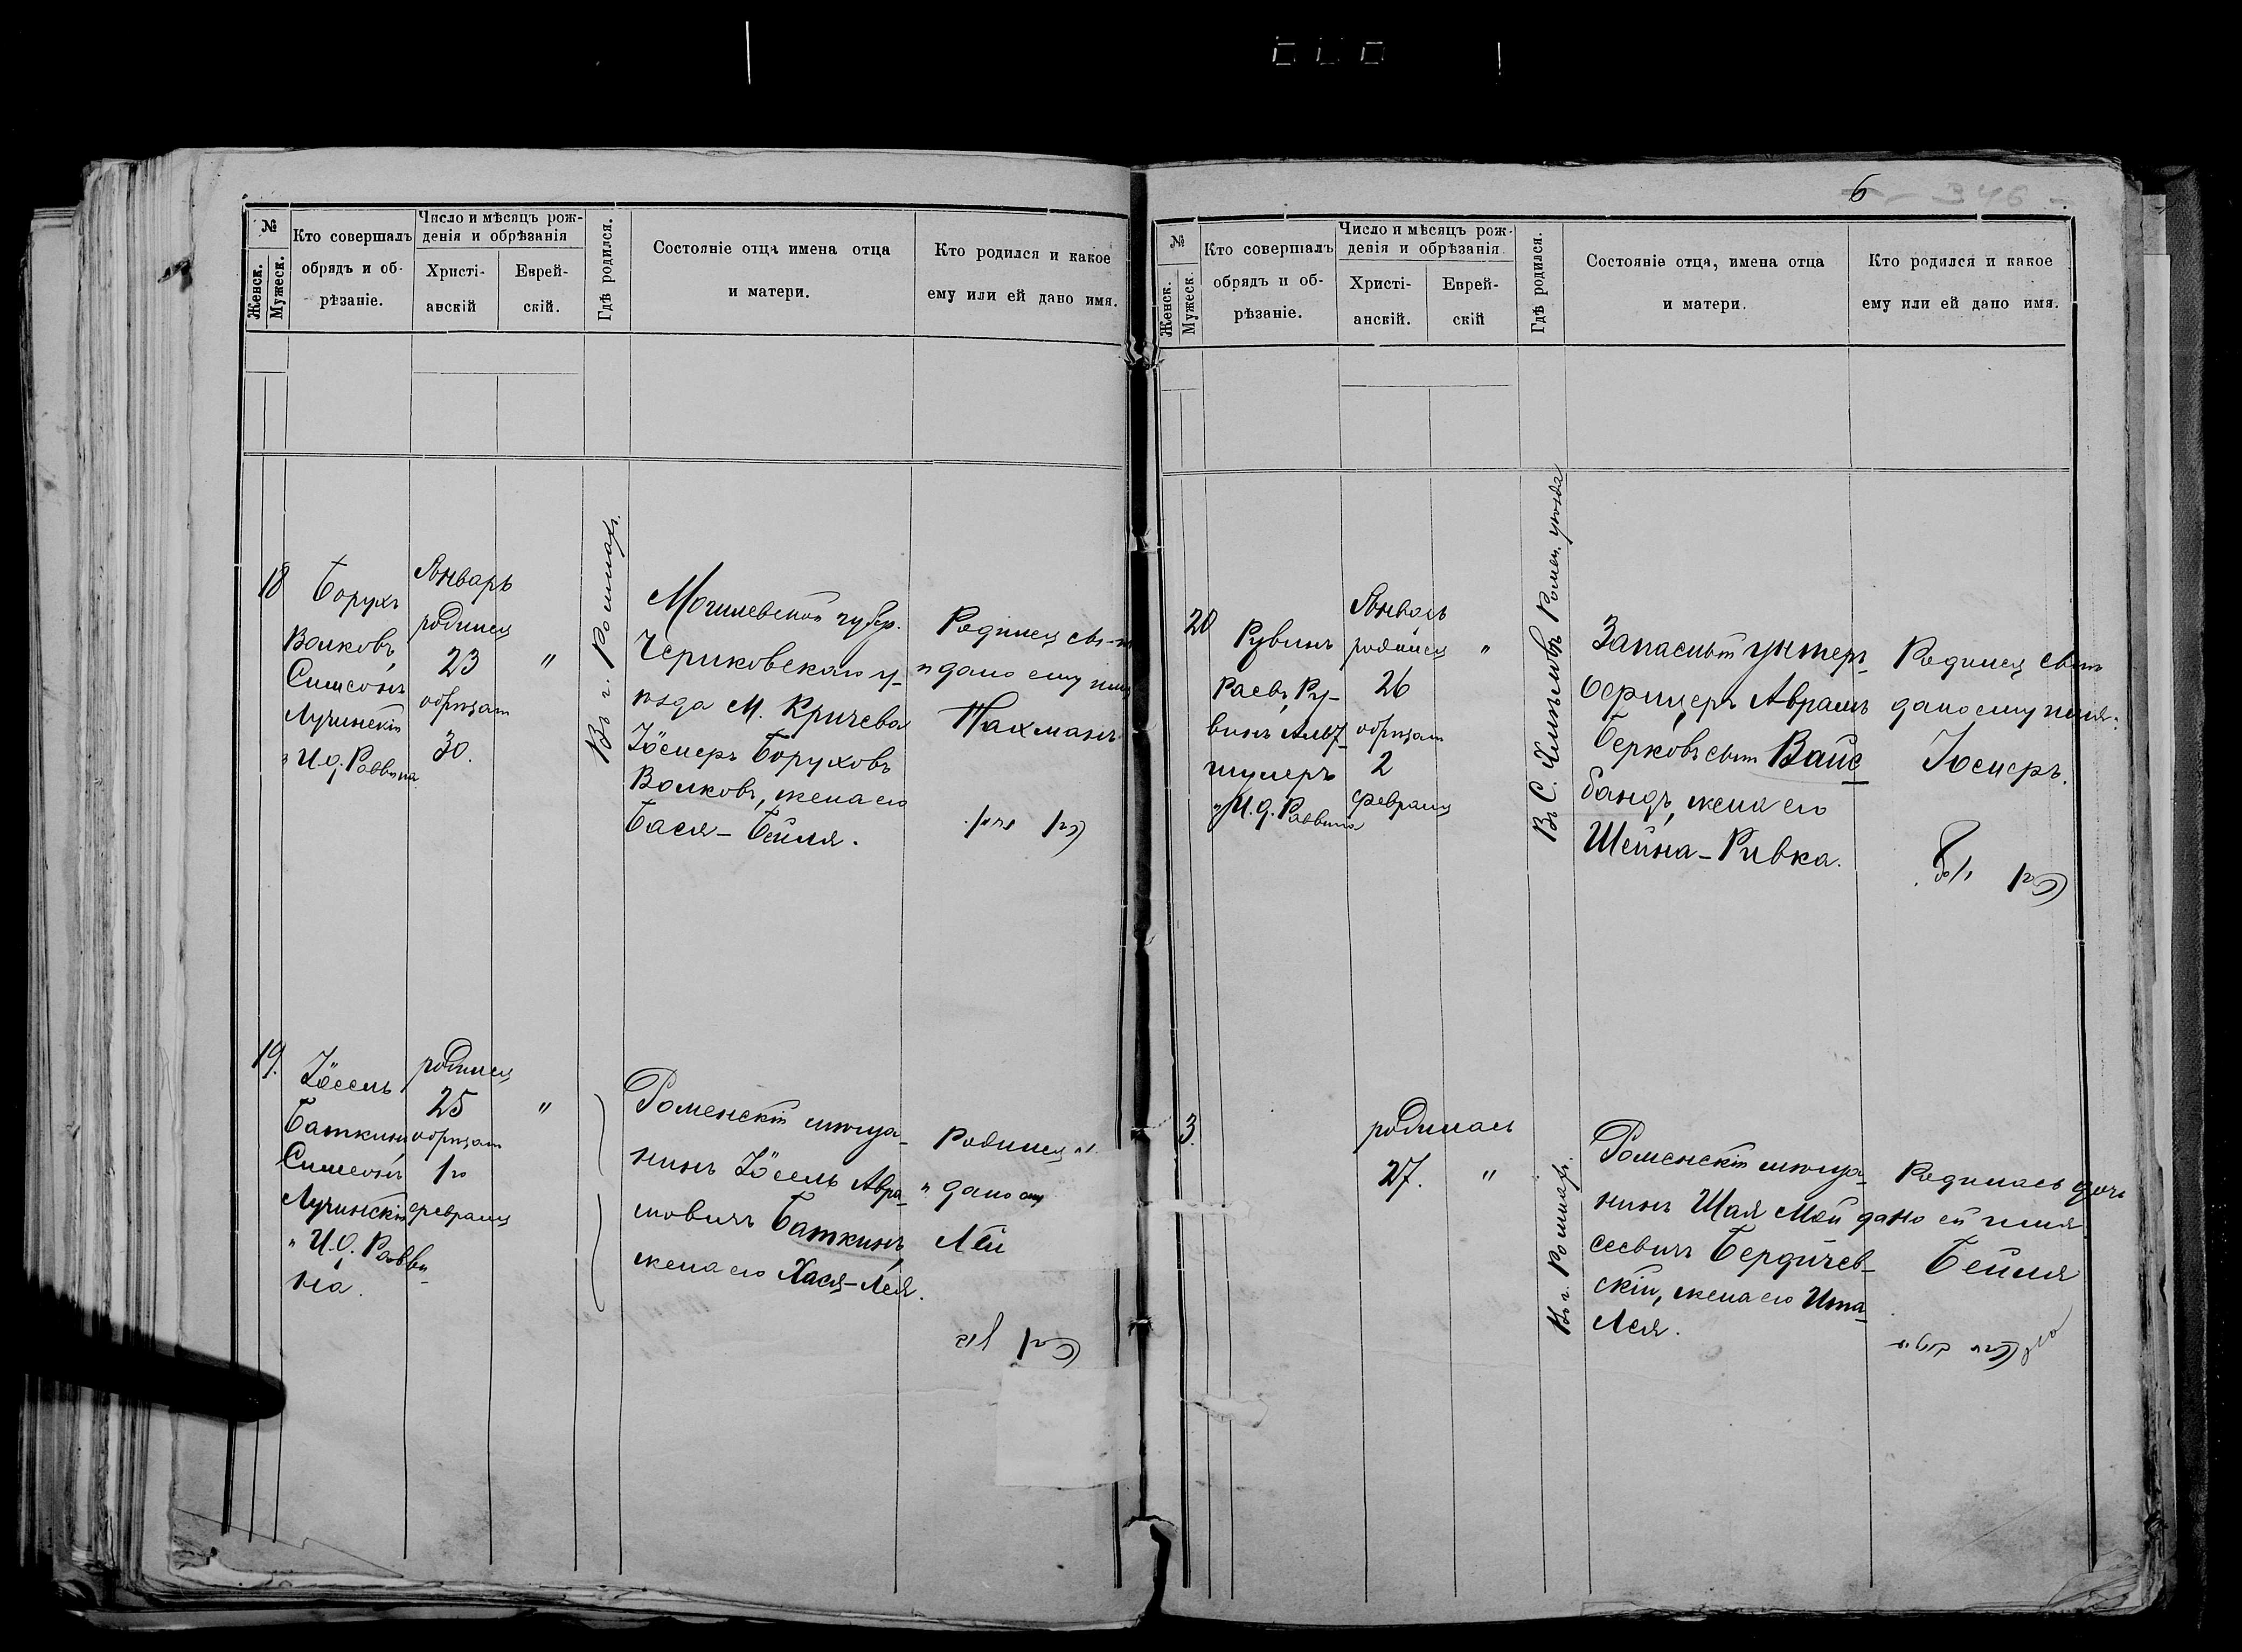 6
346
№
Женск.
Мужеск.
Кто совершалъ
обрядъ и об-
рѣзаніе.
Число и мѣсяцъ рож-
денія и обрѣзанія
Христі-
анскій
Еврей-
скій.
Гдѣ родился.
Состояніе отца имена отца
и матери.
Кто родился и какое
ему или ей дано имя.
18
Борухъ
Волковъ,
Симеонъ
Лучинскій
" И. д. Раввина
Январь
родился
23
обрѣзан
30.
"
Въ г. Ромнахъ.
Могилевской губер.
Чериковскаго у-
ѣзда М. Кричева
Іосифъ Боруховъ
Волковъ, жена его
Бася-Бейля.
Родился сы-нъ
" дано ему имя
Нахманъ
19.
Іосель
Баткинъ,
Симеонъ
Лучинскій
" И. д. Равви-
на.
родился
25
обрѣзан
1го
февраля
"
Роменскій мѣща-
нинъ Іосель Авра-
мовичъ Баткинъ,
жена его Хася-Лея.
Родился
" дано ему
№
Женск.
Мужеск.
Кто совершалъ
обрядъ и об-
рѣзаніе.
Число и мѣсяцъ рож-
денія и обрѣзанія.
Христі-
анскій.
Еврей-
скій
Гдѣ родился.
Состояніе отца, имена отца
и матери.
Кто родился и какое
ему или ей дано имя.
20
Рувинъ
Раевъ, Ру-
винъ Альт-
шулеръ
" И. д. Раввина
Январь
родился
26
обрѣзан
2
февраля
"
Запасный унтеръ-
офицеръ Аврамъ
Берковъ сынъ Вайс-
бандъ, жена его
Шейна-Ривка.
Родился сынъ
дано ему имя.
Іосифъ.
3.
родилась
27.
"
Въ г. Ромнахъ.
Роменскій мѣща-
нинъ Шая Мои-
сеевичъ Бердичев-
скій, жена его Ита-
Лея.
Родилась дочь
дано ей имя
Бейля